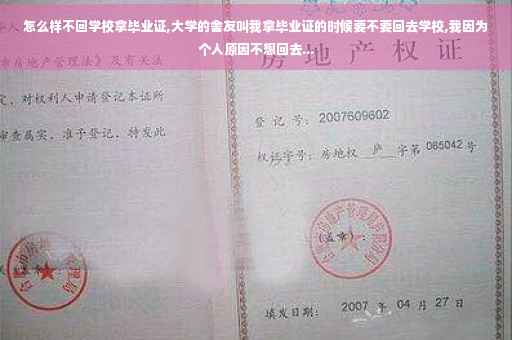 怎么样不回学校拿毕业证,大学的舍友叫我拿毕业证的时候要不要回去学校,我因为
个人原因不想回去...
房地产权证
房地产管理法》及有关法
定,对权利人申请登记本证所
审查属实,准予登记,特发此
登记号:2007609602
权证字号:房地权 庐 字第 085042 号
(盖章):
填发日期: 2007 年 04 月 27 日